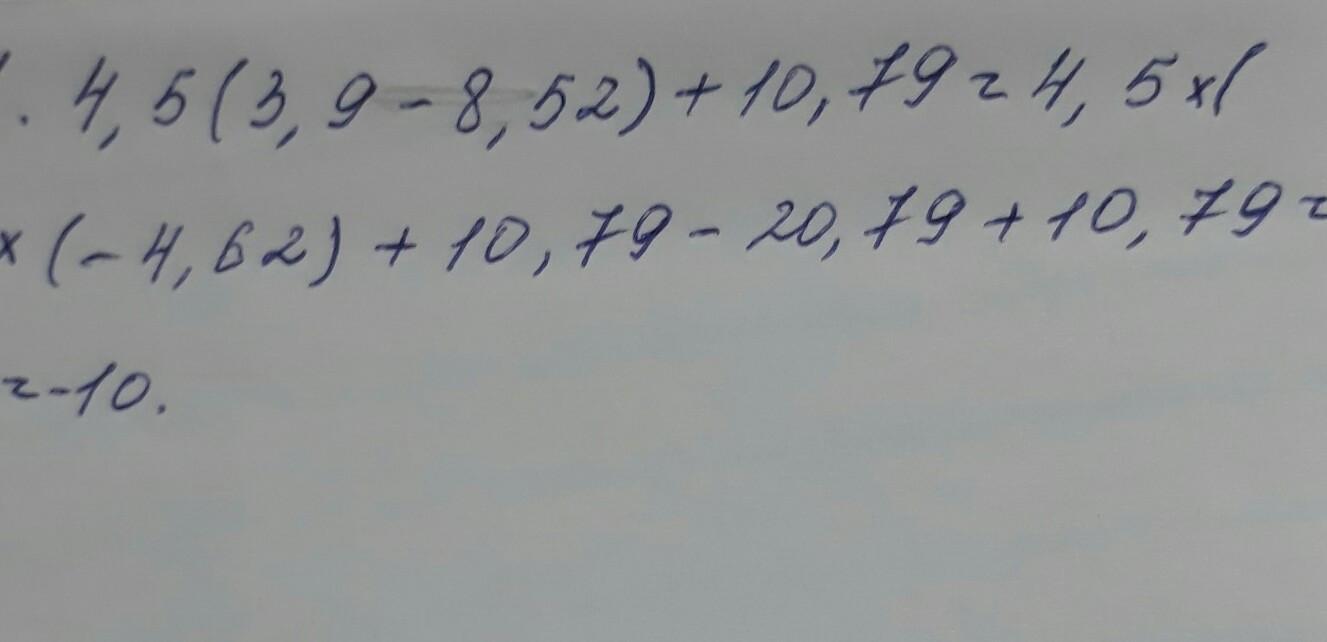 . 4,5(3,9-8,52)+10,79=4,5×(
×(-4,62)+10,79-20,79+10,79=
=-10.